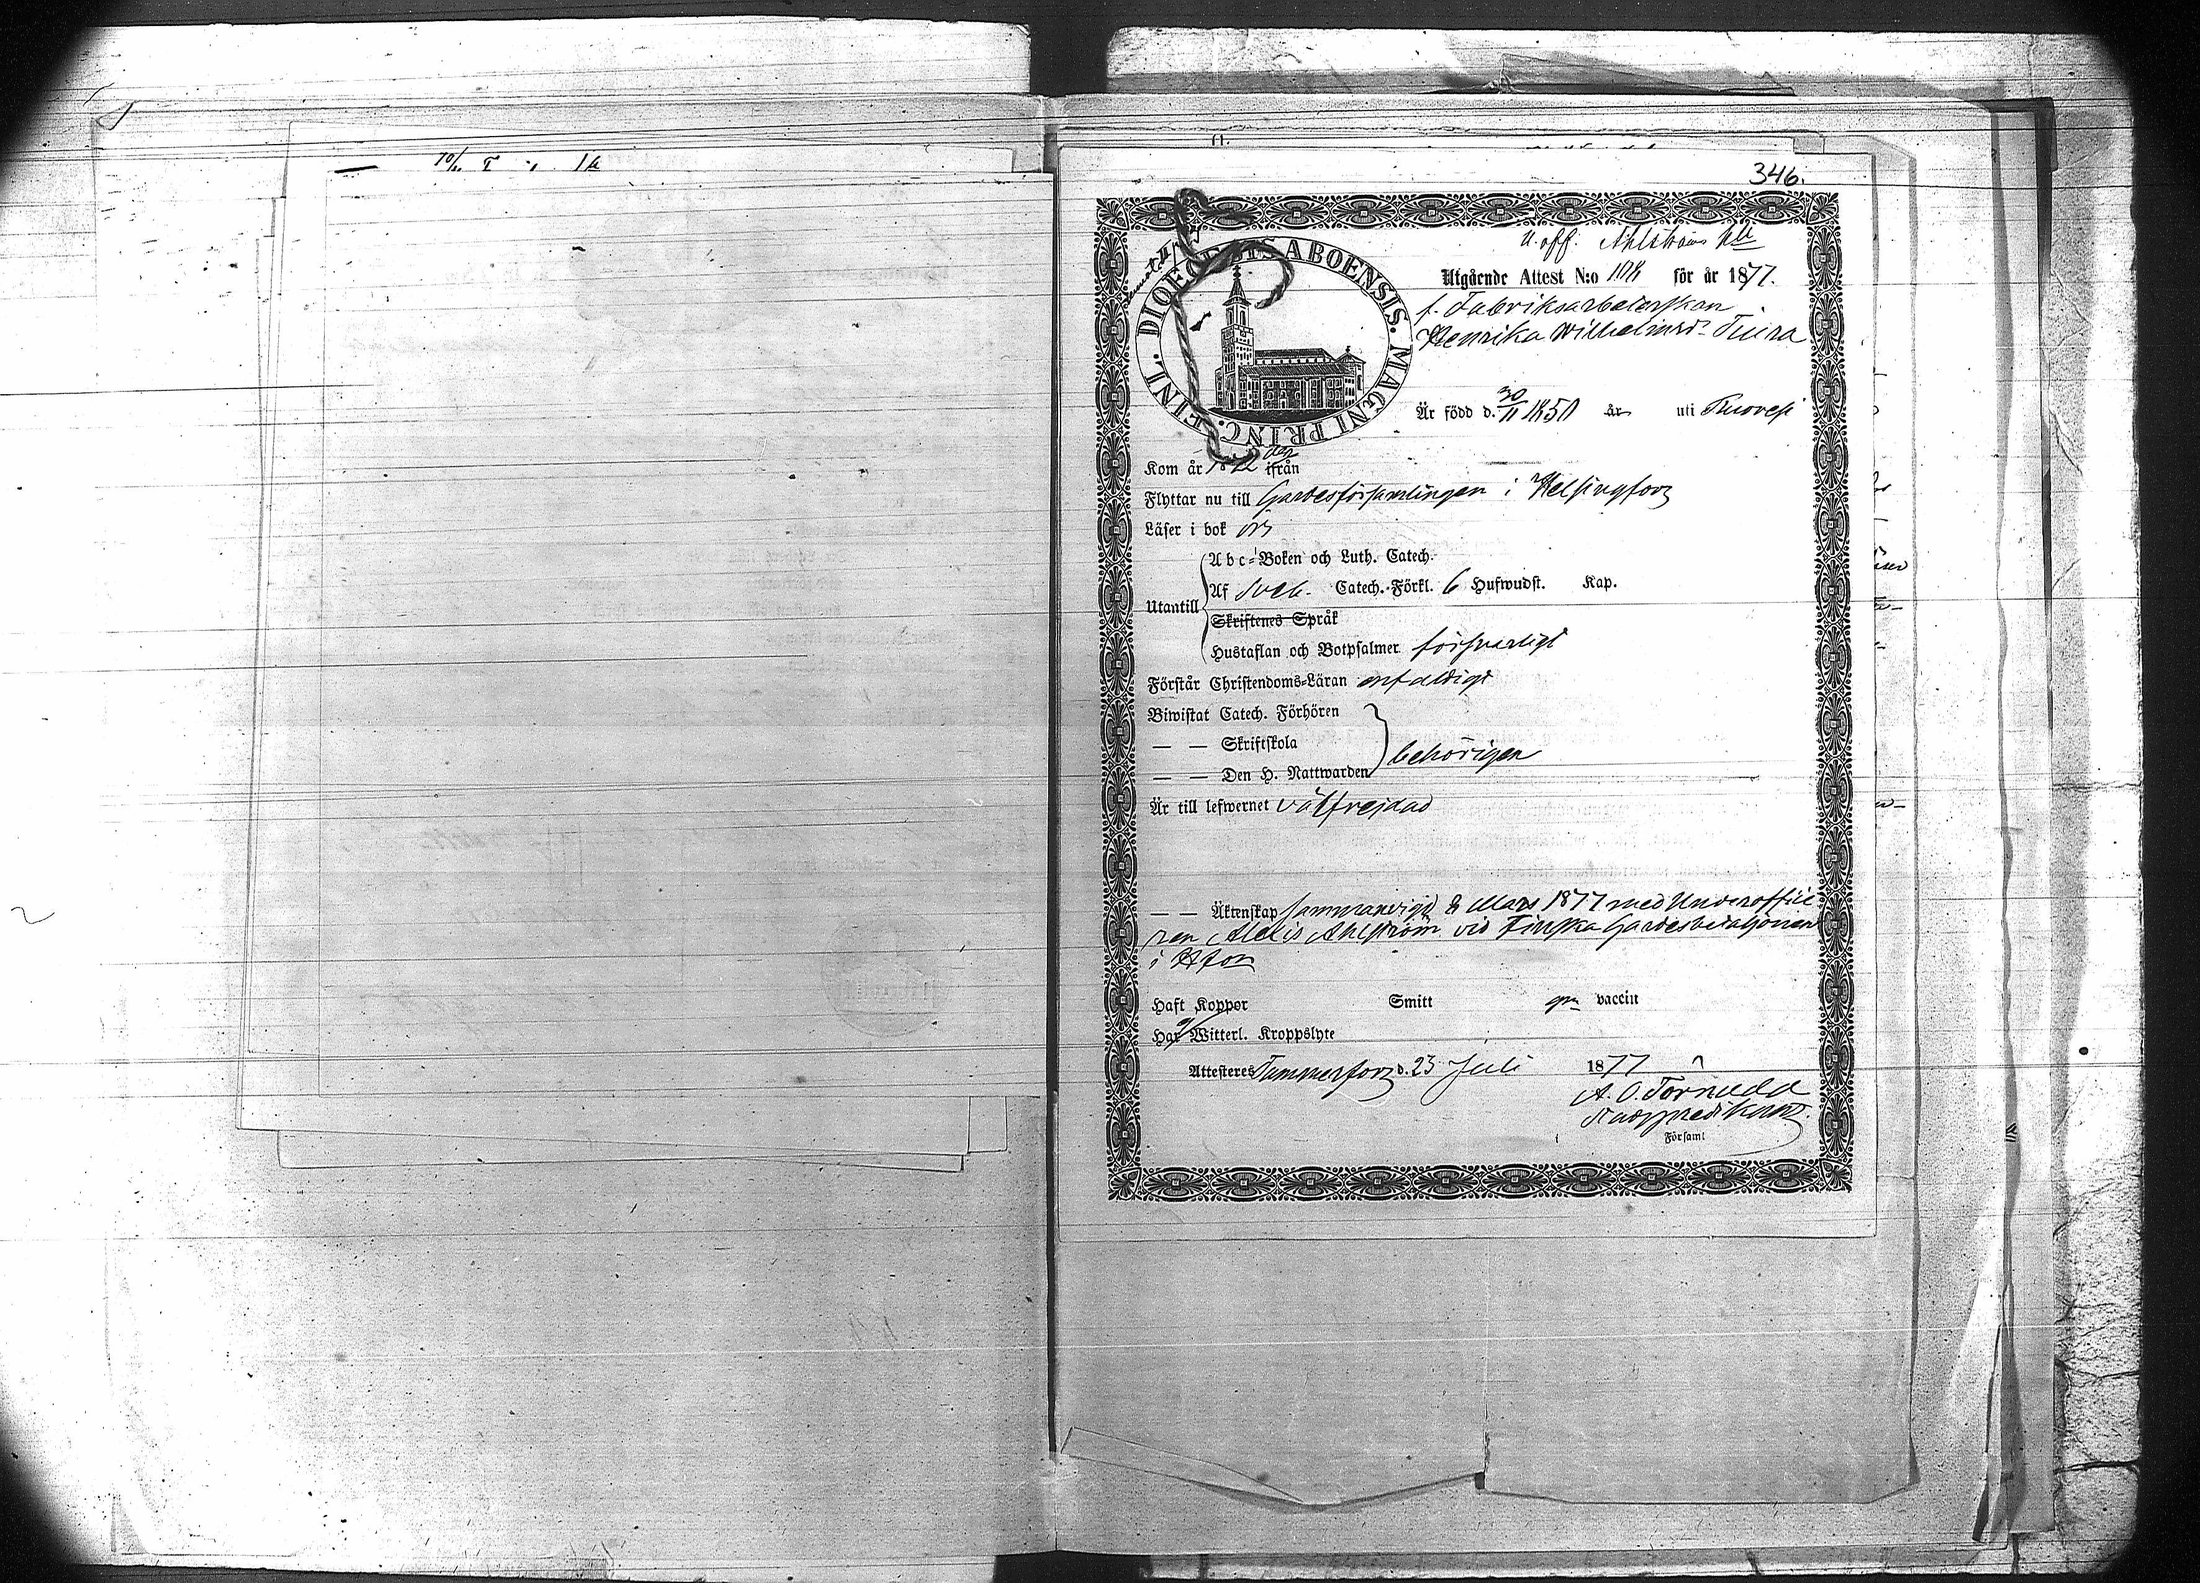 346.
u. off. Ahlströms
Utgående Attest N:o 104 för år 1877.
f. Fabriksarbeterskan
Henrika Wilhelmsd:r Tiura
DIOECESIS ABOENSIS. MAGNI PRINC. FINL.
Är född d. 30/11 1850 år uti Ruovesi
Kom år ifrån
Flyttar nu till Gardesförsamlingen i Helsingfors
Läser i bok
Abc-Boken och Luth. Catech.
Utantill Af Sveb. Catech.-Förkl. 6 Hufwudst. Kap.
Skriftenes Språk
Hustaflan och Botpsalmer försvarligt
Förstår Christendoms-Läran enfaldigt
Biwistat Catech. Förhören
— — Skriftskola behörigen
— — Den H. Nattwarden
Är till lefwernet välfrejdad
— — Äktenskap sammanvigd 8 Mars 1877 med Underoffice
ren Alexis Ahlström vid Finska Gardesbataljonen
i Hfors
Haft Koppor Smitt gm vaccin
Har Witterl. Kroppslyte
Attesteres Tammerfors d. 23 Juli 1877
A. O. Törnudd
Kappredikant.
Församl